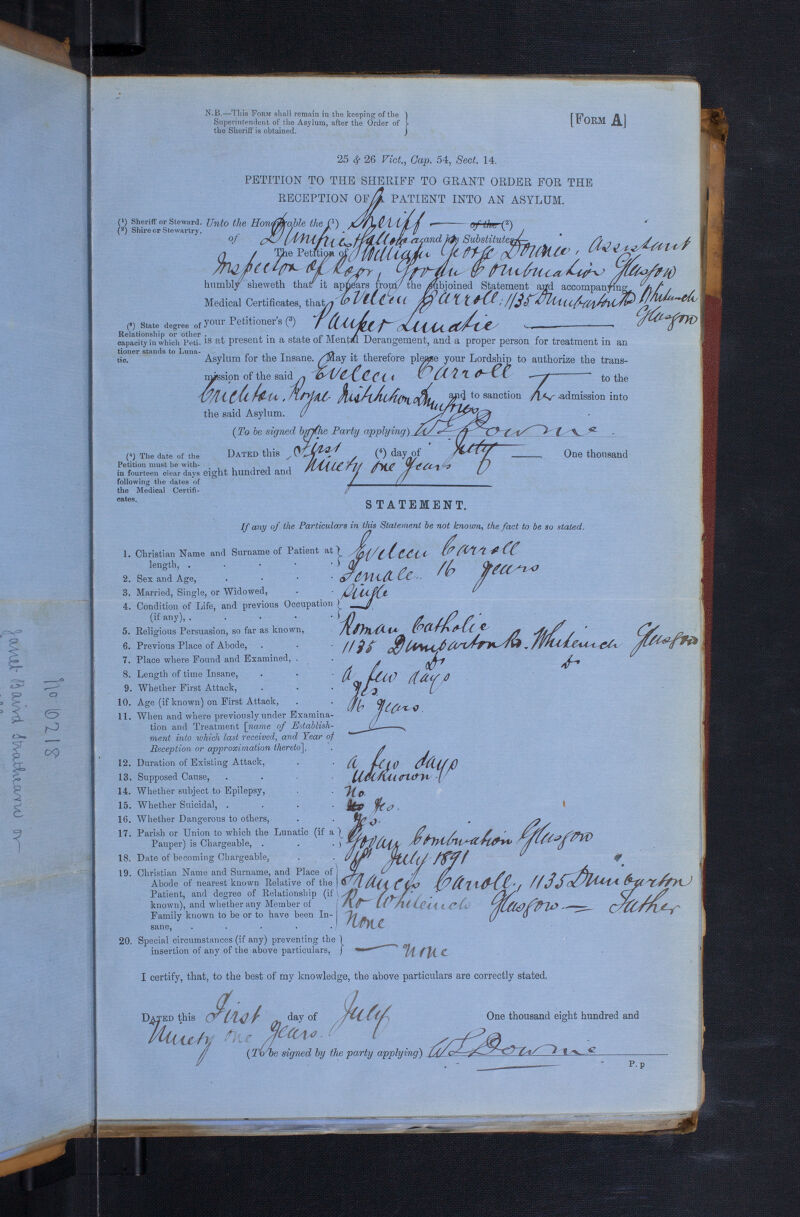 N.B.—This Form shall remain in the keeping of the
Superintendent of the Asylum, after the Order of
the Sheriff is obtained.
[Form A]
25 & 26 Vict., Cap. 54, Sect. 14.
PETITION TO THE SHERIFF TO GRANT ORDER FOR THE
RECEPTION OF A PATIENT INTO AN ASYLUM.
(¹) Sheriff or Steward.
(²) Shire or Stewartry.
Unto the Honourable the (¹) Sheriff — of the (²)
of Dumfries & Galloway and his Substitutes
The Petition of William George Downie, Assistant
Inspector of Poor, Govan Combination Glasgow
humbly sheweth that it appears from the subjoined Statement and accompanying
Medical Certificates, that Eveleen Carroll, 1135 Dumbarton Rd Whiteinch
Glasgow
(³) State degree of
Relationship or other
capacity in which Peti-
tioner stands to Luna-
tic.
your Petitioner's (³) Pauper Lunatic —
is at present in a state of Mental Derangement, and a proper person for treatment in an
Asylum for the Insane. May it therefore please your Lordship to authorize the trans-
mission of the said Eveleen Carroll — to the
Crichton Royal Institution Dumfries and to sanction her admission into
the said Asylum.
(To be signed by the Party applying) Downie
(⁴) The date of the
Petition must be with-
in fourteen clear days
following the dates of
the Medical Certifi-
cates.
Dated this First (⁴) day of July — One thousand
eight hundred and Ninety one years
STATEMENT.
If any of the Particulars in this Statement be not known, the fact to be so stated.
1. Christian Name and Surname of Patient at
length, . Eveleen Carroll
2. Sex and Age, Female 16 years
3. Married, Single, or Widowed, Single
4. Condition of Life, and previous Occupation
(if any), . —
5. Religious Persuasion, so far as known, Roman Catholic
6. Previous Place of Abode, 1135 Dumbarton Ro. Whiteinch Glasgow
7. Place where Found and Examined, . Do Do
8. Length of time Insane, a few days
9. Whether First Attack, Yes
10. Age (if known) on First Attack, 16 years
11. When and where previously under Examina-
tion and Treatment [name of Establish-
ment into which last received, and Year of
Reception or approximation thereto]. —
12. Duration of Existing Attack, a few days
13. Supposed Cause, unknown
14. Whether subject to Epilepsy, No
15. Whether Suicidal, . No Yes.
16. Whether Dangerous to others, Yes
17. Parish or Union to which the Lunatic (if a
Pauper) is Chargeable, . Govan Combination Glasgow
18. Date of becoming Chargeable, July 1891
19. Christian Name and Surname, and Place of
Abode of nearest known Relative of the
Patient, and degree of Relationship (if
known), and whether any Member of
Family known to be or to have been In-
sane, Francis Carroll, 1135 Dumbarton
Ro Whiteinch Glasgow — Father
None
20. Special circumstances (if any) preventing the
insertion of any of the above particulars, — none
I certify, that, to the best of my knowledge, the above particulars are correctly stated.
Dated this First day of July One thousand eight hundred and
Ninety one years.
(To be signed by the party applying) Downie
P. p
No 10218
Janet Baird Strathearn or